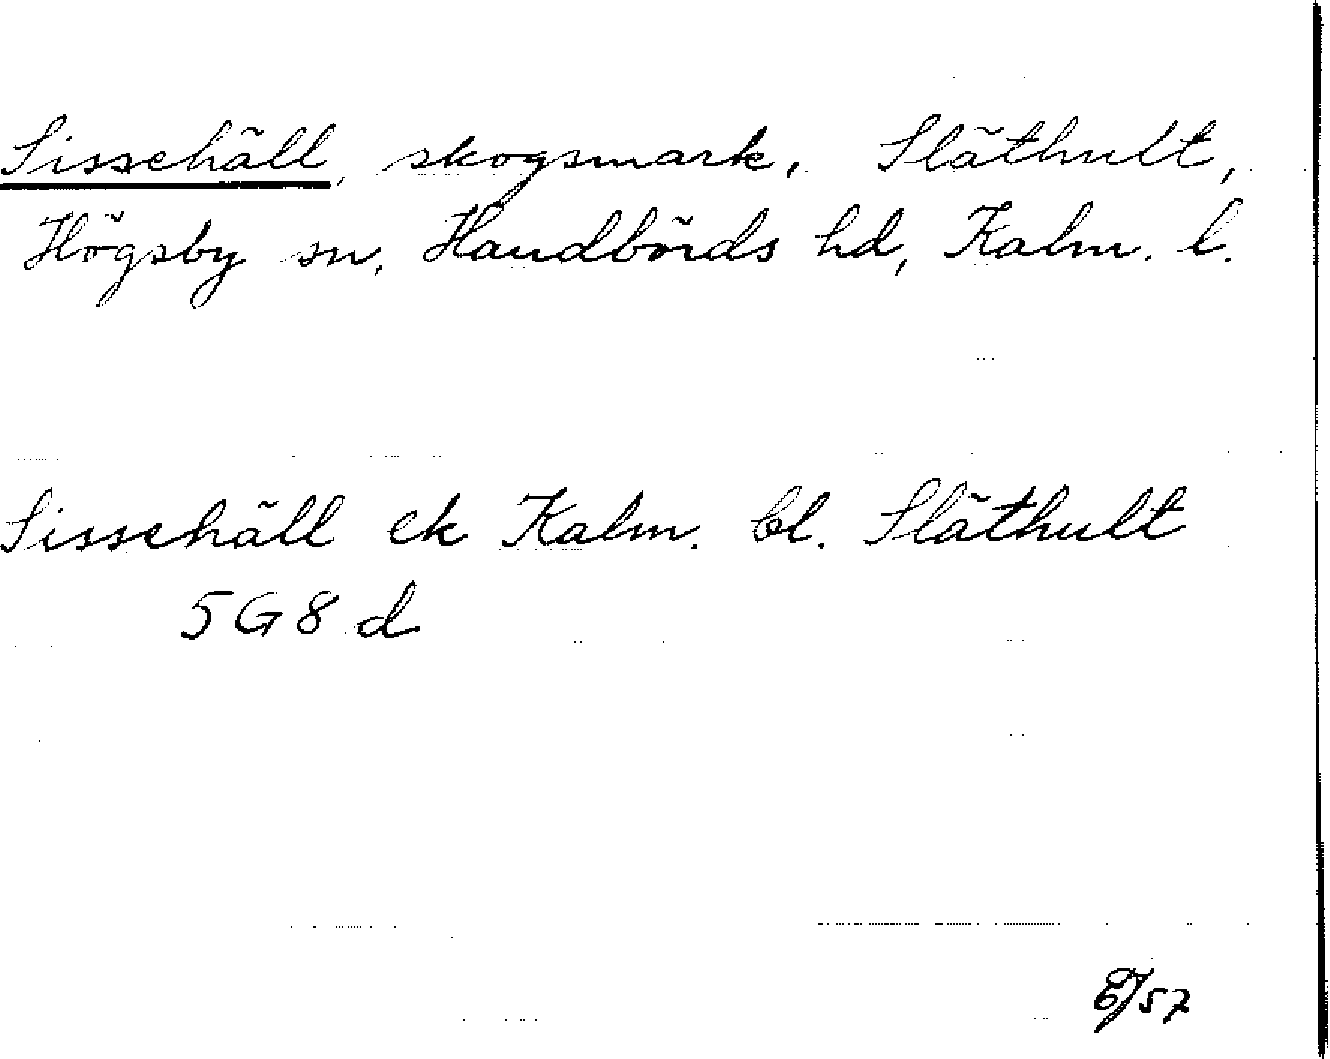 Sissehäll, skogsmark, Släthult,
Högsby sn, Handbörds hd, Kalm. l.
Sissehäll ek Kalm. bl. Släthult
5G8d